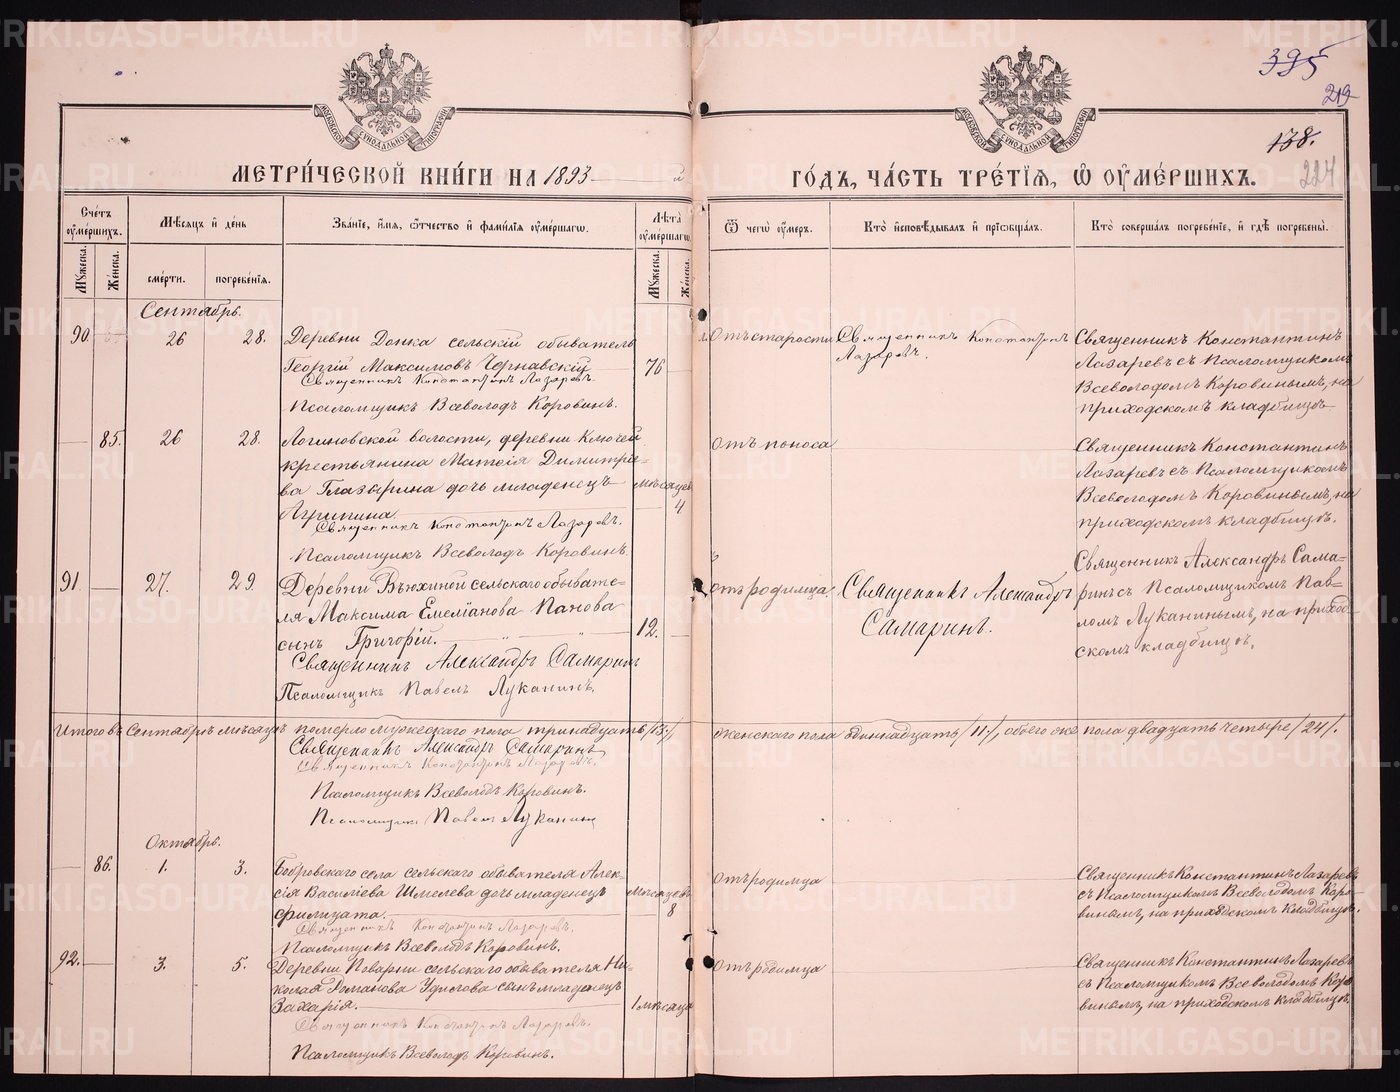 395
219
138.
224
МОСКОВСКОЙ СѴНОДАЛЬНОЙ ТИПОГРАФІИ
МОСКОВСКОЙ СѴНОДАЛЬНОЙ ТИПОГРАФІИ
МЕТРИ́ЧЕСКОЙ КНИ́ГИ НА 1893 й
ГО́ДЪ, ЧА́СТЬ ТРЕ́ТІѦ, Ѡ ОУМЕ́РШИХЪ.
Сче́тъ оуме́ршихъ.
Мѣ́сѧцъ и де́нь
Зва́ніе, и́мѧ, ѻ́тчество и фами́лїѧ оуме́ршагѡ.
Лѣ́та оуме́ршагѡ
Ѿ чегѡ̀ оу́меръ.
Кто̀ и҆сповѣ́дывалъ и прїѡбща́лъ.
Кто̀ соверша́лъ погребе́нїе, и гдѣ̀ погребены̀.
Мꙋжеска.
Же́нска.
сме́рти.
погребе́нїѧ.
Мꙋжеска.
Же́нска.
Сентябрь.
90.
26
28.
Деревни Донка сельскій обыватель
Георгій Максимовъ Чернавскій
76
Священникъ Константинъ Лазаревъ.
Псаломщикъ Всеволодъ Коровинъ.
Отъ старости
Священникъ Константинъ
Лазаревъ.
Священникъ Константинъ
Лазаревъ съ Псаломщикомъ
Всеволодомъ Коровинымъ, на
приходскомъ кладбищѣ
85.
26
28.
Логиновской волости, деревни Ключей
крестьянина Матѳія Димитріе-
ва Глазырина дочь младенецъ
Агрипина
мѣсяцев
4
Священникъ Константинъ Лазаревъ.
Псаломщикъ Всеволодъ Коровинъ.
отъ поноса
Священникъ Константинъ
Лазаревъ съ Псаломщикомъ
Всеволодомъ Коровинымъ, на
приходскомъ кладбищѣ.
91
27.
29.
Деревни Вьюхиной сельскаго обывате-
ля Максима Емельянова Панова
сынъ Григорій.
12.
Священникъ Александръ Самаринъ
Псаломщикъ Павелъ Луканинъ.
отъ родимца
Священникъ Александръ
Самаринъ.
Священникъ Александръ Сама-
ринъ съ Псаломщикомъ Пав-
ломъ Луканинымъ, на приход-
скомъ кладбищѣ.
Итого въ Сентябрѣ мѣсяцѣ померло мужескаго пола тринадцать /13/, женскаго пола одиннадцать /11/, обоего же пола двадцать четыре /24/.
Священникъ Александръ Самаринъ
Священникъ Константинъ Лазаревъ.
Псаломщикъ Всеволодъ Коровинъ.
Псаломщикъ Павелъ Луканинъ
Октябрь.
86.
1.
3.
Бобровскаго села сельскаго обывателя Алек-
сія Василіева Шмелева дочь младенецъ
Филицата.
Мѣсяцевъ
8
Священникъ Константинъ Лазаревъ.
Псаломщикъ Всеволодъ Коровинъ.
Отъ родимца
Священникъ Константинъ Лазаревъ
съ Псаломщикомъ Всеволодомъ Коро-
винымъ, на приходскомъ кладбищѣ.
92.
3.
5.
Деревни Поварни сельскаго обывателя Ни-
колая Романова сынъ младенецъ
Захарія.
1 мѣсяца
Священникъ Константинъ Лазаревъ.
Псаломщикъ Всеволодъ Коровинъ.
Отъ родимца
Священникъ Константинъ Лазаревъ
съ Псаломщикомъ Всеволодомъ Коро-
винымъ, на приходскомъ кладбищѣ.
METRIKI.GASO-URAL.RU